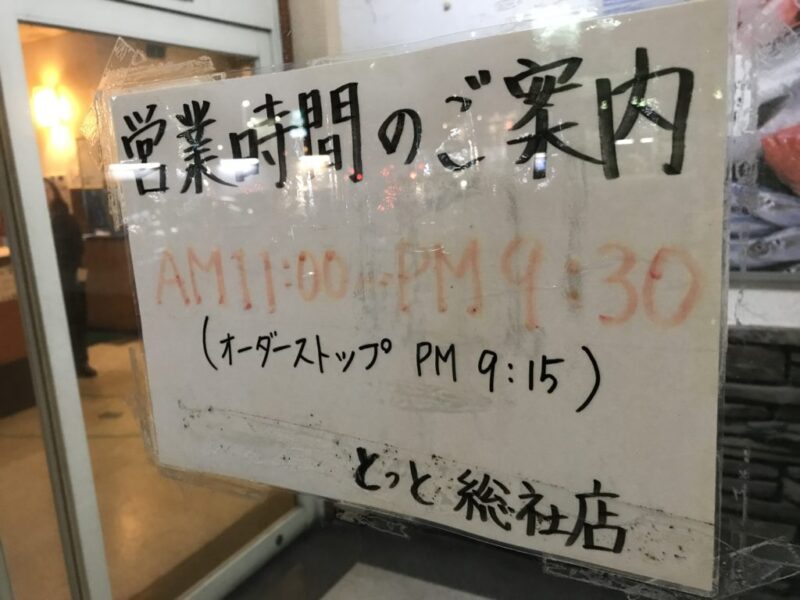 営業時間のご案内
AM11:00〜PM9:30
(オーダーストップ PM 9:15)
とっと 総社店